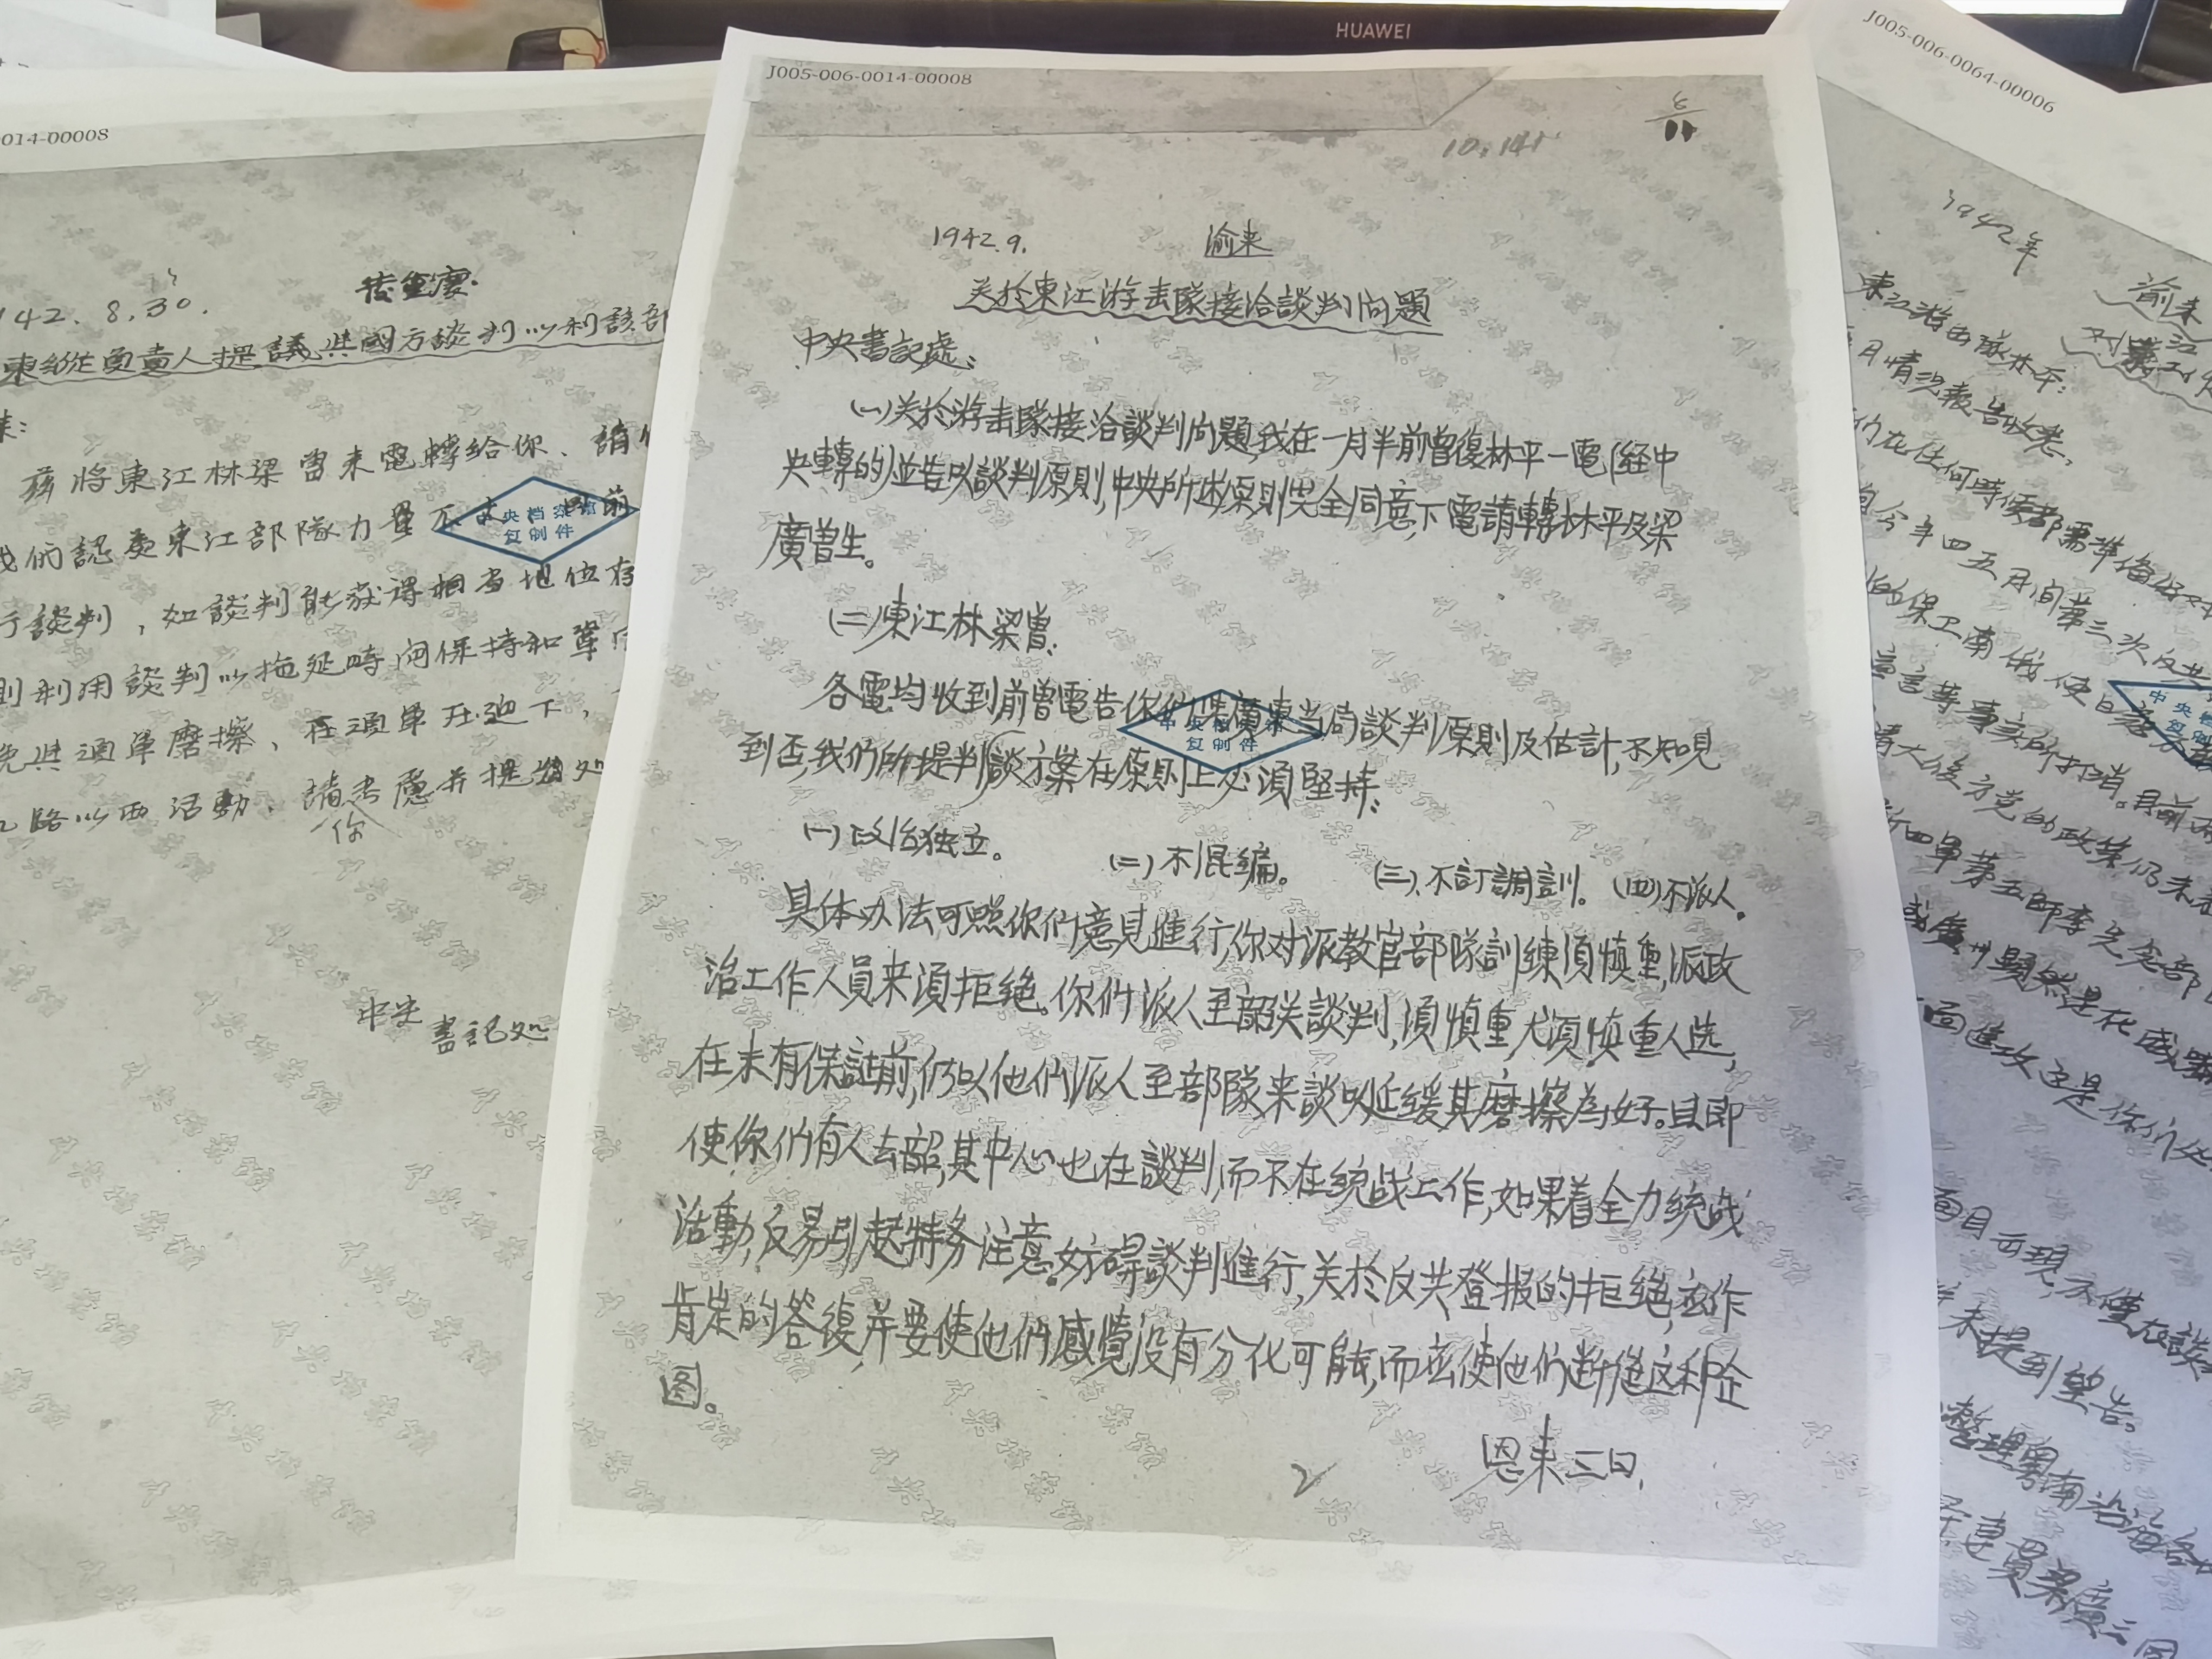 HUAWEI
014-00008
42. 8. 30.
東縱負責人提議與國方談判以利該部
茲將東江林梁曾来電轉給你、請
我們認為東江部隊力量不大,目前
行談判,如談判能获得相当地位存
則利用談判以拖延時间保持和鞏固
免與頑軍磨擦、在頑軍压迫下,
路以西活動、請你考慮并提出处
中央
書記处
中央档案馆
复制件
J005-006-0014-00008
10.14
1942.9.
渝来
关於東江游击隊接洽談判问題
中央書記處:
(一)关於游击隊接洽談判问題,我在一月半前曾復林平一電(経中
央轉的)並告以談判原則,中央所述原則完全同意,下電請轉林平及梁
廣曾生。
(二)東江林梁曾:
各電均收到前曾電告你们與廣東当局談判原則及估計,不知見
到否,我們所提判談方案在原則上必須堅持:
(一)政治独立。 (二)不混编。 (三)不訂調訓。 (四)不派人。
具体办法可照你們意見進行,你对派教官部隊訓練須慎重,派政
治工作人員来須拒絕。你們派人至韶关談判,須慎重,尤須慎重人选,
在未有保証前,仍以他們派人至部隊来談以延缓其磨擦為好。且即
使你們有人去韶,其中心也在談判,而不在統战工作,如果着全力統战
活動,反易引起特务注意。妨碍談判進行,关於反共登报的拒絕,应作
肯定的答復,并要使他們感覺没有分化可能,而应使他們断绝这种企
图。
恩来三日.
2
中央档案馆
复制件
J005-006-0064-00006
1942年
渝来
東江游击隊林平:
月情况報告收悉,
們在任何時候都需準備好
自今年四五月间第三次反共
的保卫南俄使日
宣言等事实所打消。目前
清大後方党的政策仍未
新四軍第五師李先念部
或廣州顯然是在威
面進攻这是你们
面目可現,不僅在談
未提到望告。
整理粤南沿海各
連貫梁廣三同
中央
复制